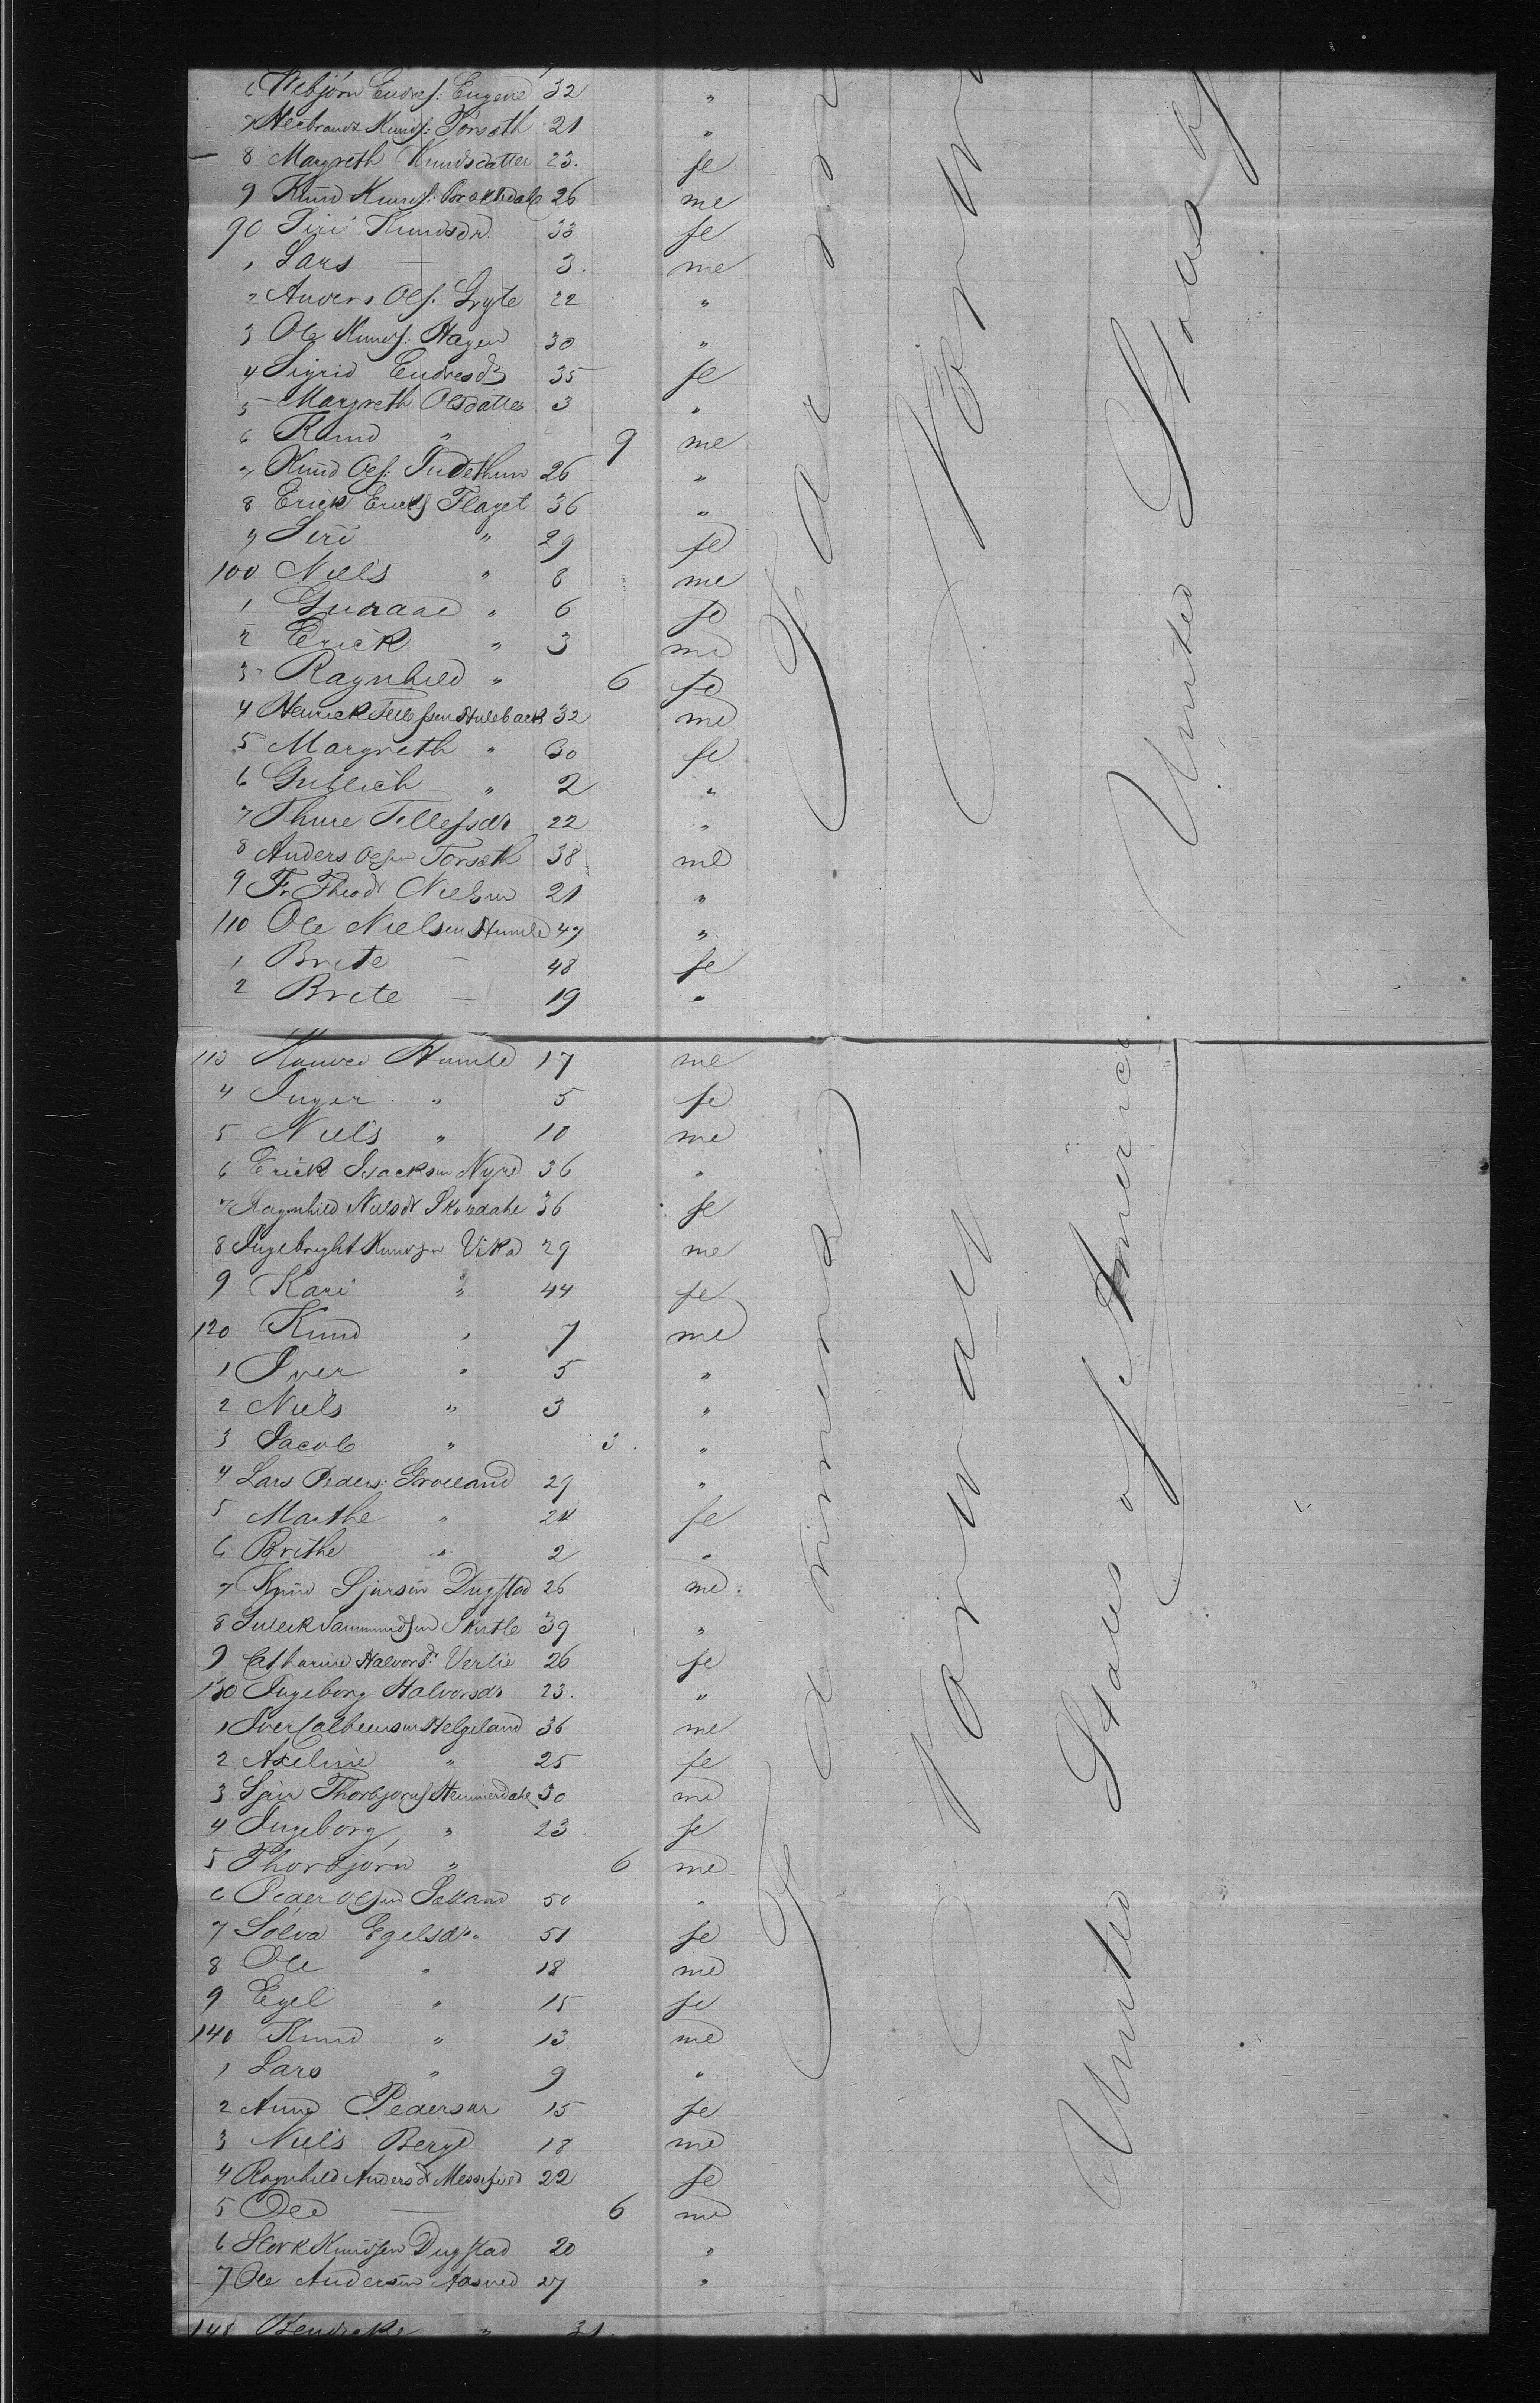 6 Webjörn Endresf: Eugene 32 "
7 Heebrandt Knudsf: Torsath 21 "
8 Margreth Knudsdatter 23. fe
9 Knud Knudsf: Brakkedahl 26 me
90 Siri Knudsdr. 33 fe
1 Lars — 3. me
2 Anders Olsf. Gryte 22 "
3 Ole Knudsf: Hagen 30 "
4 Sigrid Endresdr 35 fe
5 Margreth Olsdatter 3 "
6 Knud " 9 me
7 Knud Olsf: 26 "
8 Erick Ericksf Flaget 36 "
9 Siri " 29 fe
100 Niels " 8 me
1 " 6 fe
2 Erick " 3 me
3 Ragnhild " 6 fe
4 Henrick Tellefsen Huleback 32 me
5 Margreth " 30 fe
6 " 2 "
7 Thure Tellefsdr 22 "
8 Anders Olsen Torsath 38 me
9 Fr. Theodr Nielsen 21 "
110 Ole Nielsen Humle 47 "
1 Brite — 48 fe
2 Brite — 19 "
113 Humle 17 me
4 Inger " 5 fe
5 Niels " 10 me
6 Erick Isacksen Nyre 36 "
7 Ragnhild Nielsdr Skorsdahl 36 fe
8 Ingebright Knudsen Vika 29 me
9 Kari " 44 fe
120 Knud " 7 me
1 Iver " 5 "
2 Niels " 3 "
3 Jacob " 3. "
4 Lars Peders: 29 "
5 Marthe " 24 fe
6 Brithe " 2 "
7 Knud Sjursen Dugstad 26 me.
8 Skutle 39 "
9 Catharine Halvorsdr Verlie 26 fe
130 Ingeborg Halvorsdr 23. "
1 Helgeland 36 me
2 Axeline " 25 fe
3 Thorbjornsf Hemmerdahl 30 me
4 Ingeborg " 23 fe
5 Thorbjörn " 6 me
6 Peder Olsen 50 "
7 Solva Egelsdr " 51 fe
8 Ole " 18 me
9 Egel " 15 fe
140 Knud " 13 me
1 Lars " 9 "
2 Anne Pedersen 15 fe
3 Niels Berge 18 me
4 Ragnhild Andersdr 22 fe
5 Ole — 6 me
6 Knudsen Dugstad 20 "
7 Ole Andersen Aasved 27 "
148 " 31.
Farmers
Norway
United States of
Farmers
Norway
United States of America